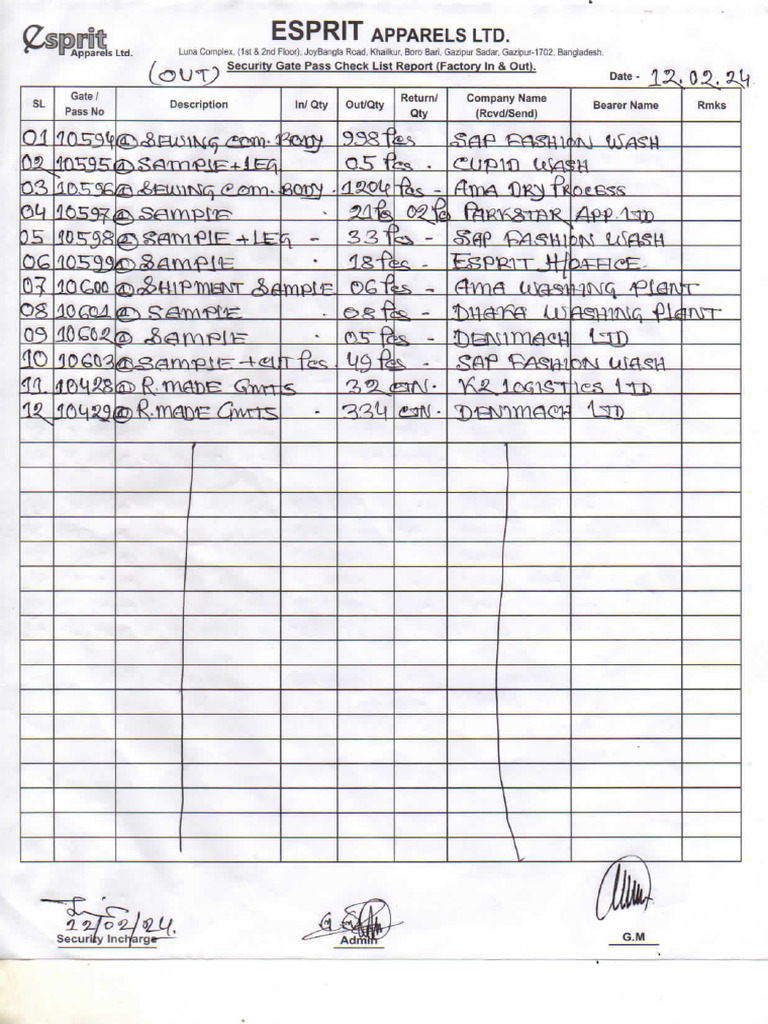 Esprit Apparels Ltd.
ESPRIT APPARELS LTD.
Luna Complex, (1st & 2nd Floor), JoyBangla Road, Khailkur, Boro Bari, Gazipur Sadar, Gazipur-1702, Bangladesh.
(OUT) Security Gate Pass Check List Report (Factory In & Out). Date - 12.02.24
SL Gate / Pass No Description In/ Qty Out/Qty Return/ Qty Company Name (Rcvd/Send) Bearer Name Rmks
01 10594 @ SEWING COM. BODY 998 Pcs SAP FASHION WASH
02 10595 @ SAMPLE + LEG 05 Pcs - CUPID WASH
03 10596 @ SEWING COM. BODY - 1204 Pcs - AMA DRY PROCESS
04 10597 @ SAMPLE - 21 Pc 02 Pc PARKSTAR APP. LTD
05 10598 @ SAMPLE + LEG - 33 Pcs - SAP FASHION WASH
06 10599 @ SAMPLE - 18 Pcs - ESPRIT H/OFFICE
07 10600 @ SHIPMENT SAMPLE 06 Pcs - AMA WASHING PLANT
08 10601 @ SAMPLE - 08 Pcs - DHAKA WASHING PLANT
09 10602 @ SAMPLE 05 Pcs - DENIMACH LTD
10 10603 @ SAMPLE + CUT Pcs. 49 Pcs - SAP FASHION WASH
11 10428 @ R. MADE GMTS 32 CTN. K2 LOGISTICS LTD
12 10429 @ R. MADE GMTS - 334 CTN. DENIMACH LTD
12/02/24.
Security Incharge Admin G.M